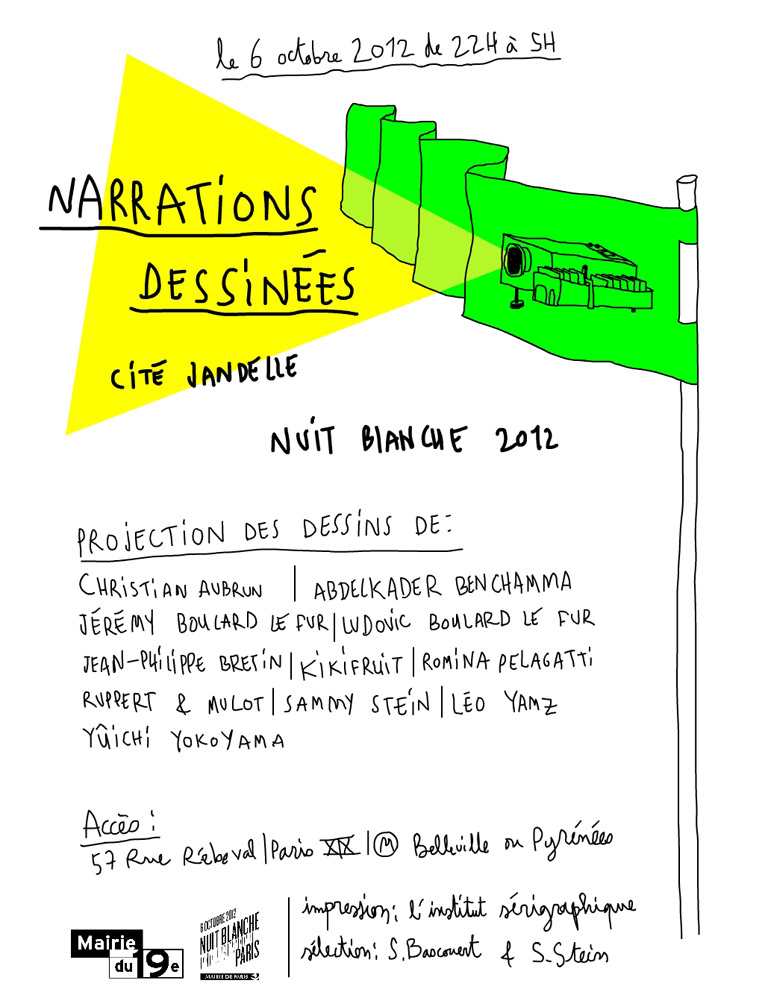 le 6 octobre 2012 de 22H à 5H
NARRATIONS
DESSINÉES
CITÉ JANDELLE
NUIT BLANCHE 2012
PROJECTION DES DESSINS DE:
CHRISTIAN AUBRUN | ABDELKADER BENCHAMMA
JÉRÉMY BOULARD LE FUR | LUDOVIC BOULARD LE FUR
JEAN-PHILIPPE BRETIN | KIKIFRUIT | ROMINA PELAGATTI
RUPPERT & MULOT | SAMMY STEIN | LÉO YAMZ
YÛICHI YOKOYAMA
Accès :
57 Rue Rébeval | Paris XIX | M Belleville ou Pyrénées
impression: l'institut sérigraphique
sélection: S. Bascouert & S. Stein
Mairie
du 19e
6 OCTOBRE 2012
NUIT BLANCHE
PARIS
MAIRIE DE PARIS